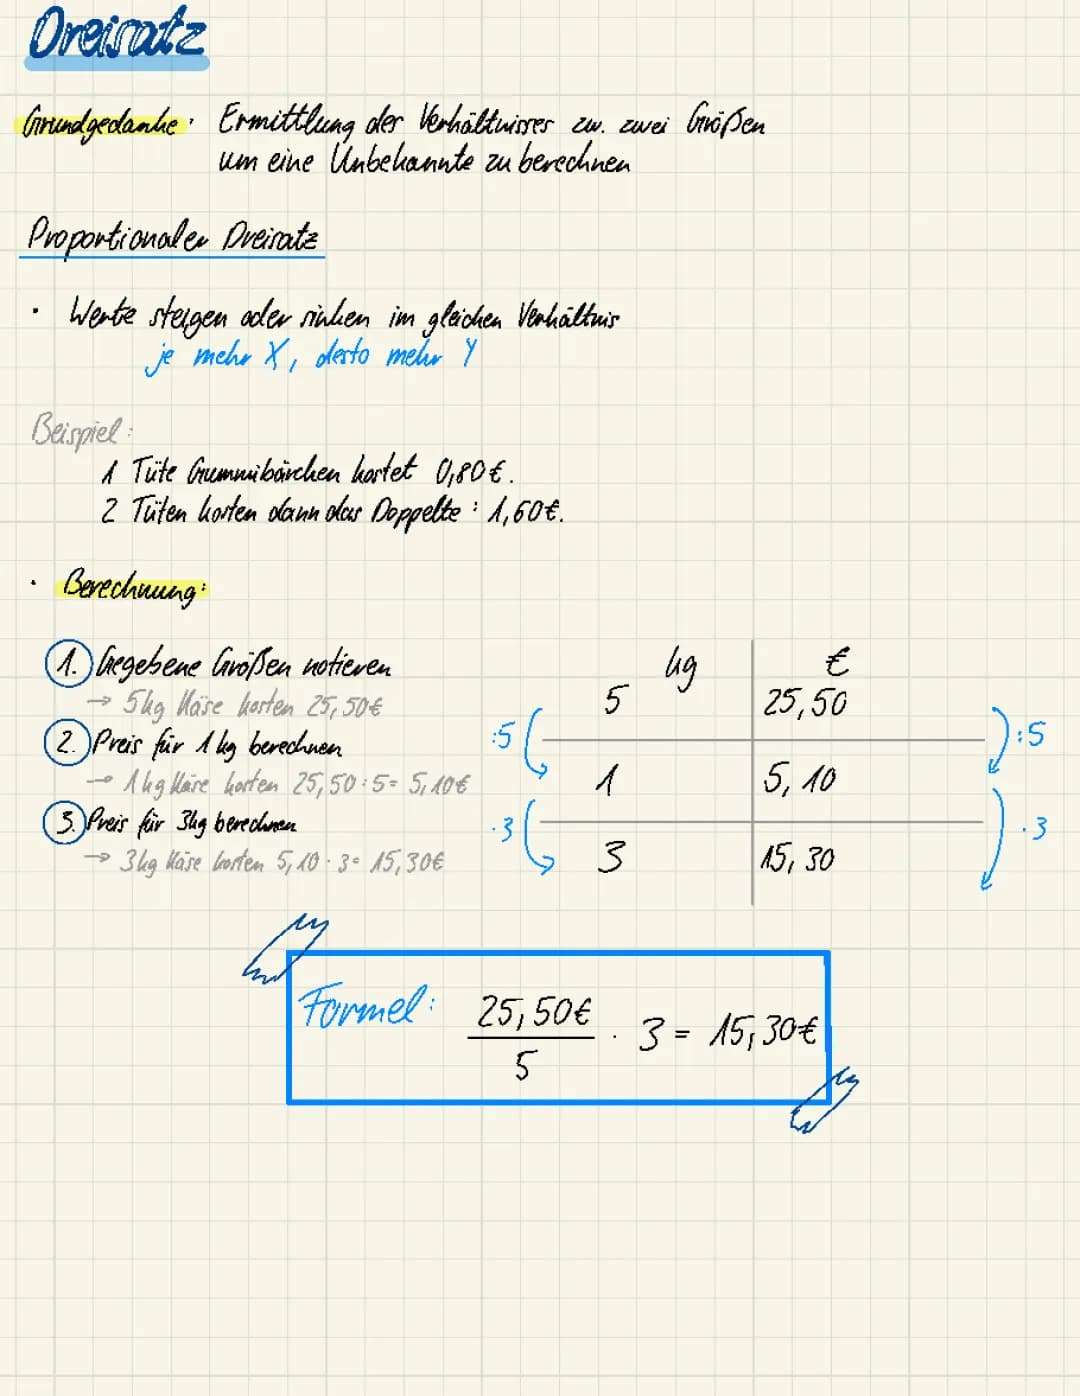 Dreisatz
Grundgedanke: Ermittlung des Verhältnisses zw. zwei Größen
um eine Unbekannte zu berechnen
Proportionaler Dreisatz
• Werte steigen oder sinken im gleichen Verhältnis
je mehr X, desto mehr Y
Beispiel:
1 Tüte Gummibärchen kostet 0,80€.
2 Tüten kosten dann das Doppelte: 1,60€.
• Berechnung:
1. Gegebene Größen notieren
→ 5kg Käse kosten 25,50€
2. Preis für 1kg berechnen
→ 1kg Käse kosten 25,50:5= 5,10€
3. Preis für 3kg berechnen
→ 3kg Käse kosten 5,10·3= 15,30€
kg €
5 25,50
:5 :5
1 5,10
·3 ·3
3 15,30
Formel: 25,50€/5 · 3 = 15,30€